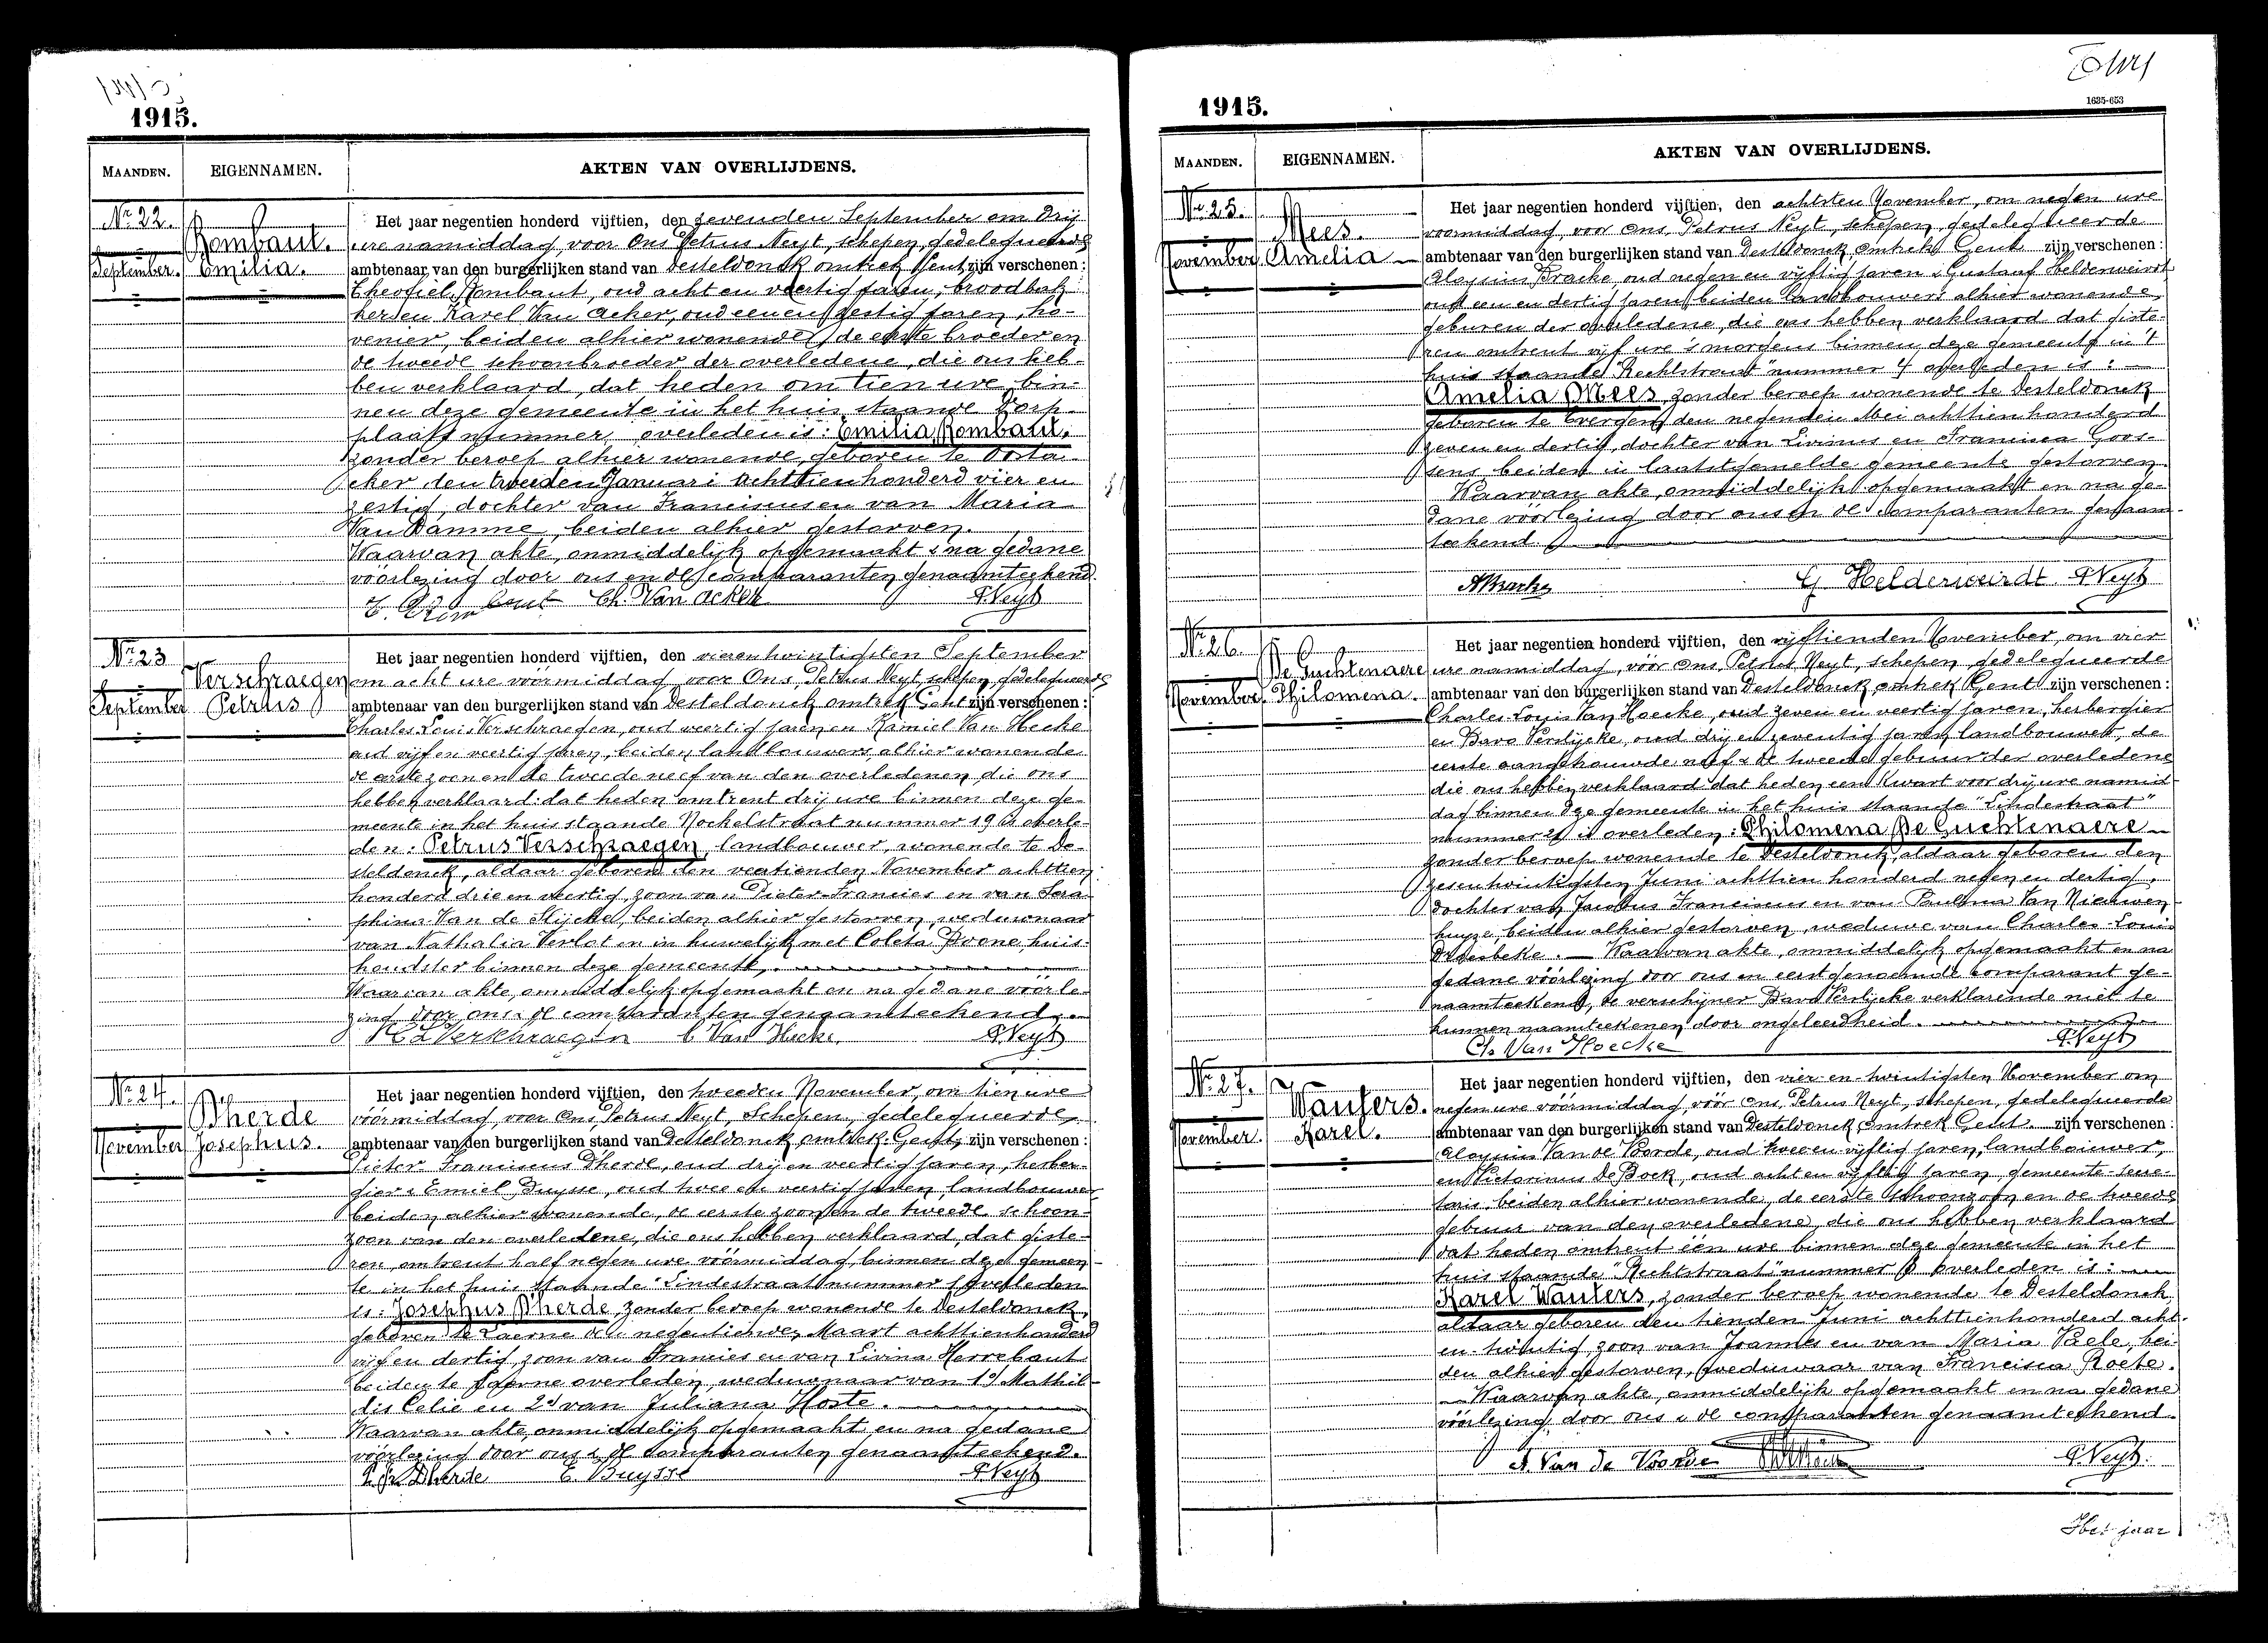 1915.
MAANDEN. EIGENNAMEN. AKTEN VAN OVERLIJDENS.
Nr. 22.
September.
Rombaut.
Emilia.
Het jaar negentien honderd vijftien, den zevenden September om drij
ure namiddag, voor Ons Petrus Neyt, schepen, gedelegueerde
ambtenaar van den burgerlijken stand van Desteldonck omtrek Gent zijn verschenen :
Theofiel Rombaut, oud acht en veertig jaren, broodbak-
ker en Karel Van Acker, oud een en zestig jaren, ho-
venier, beiden alhier wonende, de eerste broeder en
de tweede schoonbroeder der overledene, die ons heb-
ben verklaard, dat heden om tien ure bin-
nen deze gemeente in het huis staande Dorp-
plaats nummer overleden is: Emilia Rombaut,
zonder beroep alhier wonende, geboren te Oosta-
cker, den tweeden Januari achttienhonderd vier en
zestig, dochter van Franciscus en van Maria
Van Damme, beiden alhier gestorven.
Waarvan akte, onmiddelijk opgemaakt & na gedane
voorlezing door ons en de comparanten genaamteekend.
Ch. Van Acker P. Neyt
Nr. 23
September
Verschraegen
Petrus
Het jaar negentien honderd vijftien, den vierentwintigsten September
om acht ure voormiddag voor Ons, Petrus Neyt, schepen, gedelegueerde
ambtenaar van den burgerlijken stand van Desteldonck omtrek Gent zijn verschenen :
Charles Louis Verschraegen, oud veertig jaren en Kamiel Van Hecke
oud vijf en veertig jaren, beiden landbouwers, alhier wonende
de eerste zoon en de tweede neef van den overledenen, die ons
hebben verklaard: dat heden omtrent drij ure binnen deze ge-
meente in het huis staande Nockelstraat nummer 19 is overle-
den: Petrus Verschraegen, landbouwer, wonende te De-
steldonck, aldaar geboren den veertienden November achttien
honderd drie en veertig, zoon van Pieter-Francies en van Sera-
phina Van de Slijcke, beiden alhier gestorven, weduwnaar
van Nathalia Verlot en in huwelijk met Coleta Poone, huis-
houdster binnen deze gemeente.
Waarvan akte, onmiddelijk opgemaakt en na gedane voorle-
zing door ons & de comparanten genaamteekend.
Ch L Verschraegen C Van Hecke P. Neyt
Nr. 24.
November
Dherde
Josephus.
Het jaar negentien honderd vijftien, den tweeden November, om tien ure
voormiddag, voor Ons, Petrus Neyt, Schepen, gedelegueerde
ambtenaar van den burgerlijken stand van Desteldonck omtrek Gent, zijn verschenen :
Pieter Franciscus Dherde, oud drij en veertig jaren, herber-
gier & Emiel Buysse, oud twee en veertig jaren, landbouwer
beiden alhier wonende, de eerste zoon en de tweede schoon-
zoon van den overledene, die ons hebben verklaard, dat giste-
ren, omtrent half negen ure voormiddag, binnen deze gemeen-
te in het huis staande Lindestraat nummer overleden
is: Josephus Dherde, zonder beroep wonende te Desteldonck,
geboren te Laerne den negentienden Maart achttienhonderd
vijf en dertig, zoon van Francies en van Livina Herrebaut
beiden te Laerne overleden, weduwnaar van 1° Mathil-
dis Celie en 2° van Juliana Hoste.
Waarvan akte, onmiddelijk opgemaakt en na gedane
voorlezing door ons & de comparanten genaamteekend.
P. Fr. Dherde E. Buysse P. Neyt
1635-653
1915.
MAANDEN. EIGENNAMEN. AKTEN VAN OVERLIJDENS.
Nr. 25.
November
Mees.
Amelia
Het jaar negentien honderd vijftien, den achtsten November, om negen ure
voormiddag, voor Ons, Petrus Neyt, schepen, gedelegueerde
ambtenaar van den burgerlijken stand van Desteldonck, omtrek Gent zijn verschenen :
Aloysius Bracke, oud negen en vijftig jaren & Gustaaf Helderweirdt
oud een en dertig jaren, beiden landbouwers alhier wonende,
geburen der overledene, die ons hebben verklaard dat giste-
ren omtrent vijf ure 's morgens binnen deze gemeente in 't
huis staande "Rechtstraat" nummer 4 overleden is:
Amelia Mees, zonder beroep wonende te Desteldonck
geboren te Evergem den negenden Mei achttien honderd
zeven en dertig, dochter van Livinus en Francisca Goos-
sens beiden in laatstgemelde gemeente gestorven.
Waarvan akte, onmiddelijk opgemaakt en na ge-
dane voorlezing door ons en de comparanten genaam-
teekend.
A Bracke G Helderweirdt P. Neyt
Nr. 26.
November
De Guchtenaere
Philomena.
Het jaar negentien honderd vijftien, den vijftienden November, om vier
ure namiddag, voor Ons, Petrus Neyt, schepen, gedelegueerde
ambtenaar van den burgerlijken stand van Desteldonck, omtrek Gent zijn verschenen :
Charles Louis Van Hoecke, oud zeven en veertig jaren, herbergier
en Bavo Verslycke, oud drij en zeventig jaren landbouwer, de
eerste aangehouwde neef & de tweede gebuur der overledene
die ons hebben verklaard dat heden een kwart voor drij ure namid-
dag binnen deze gemeente in het huis staande "Lindestraat"
nummer 21 is overleden: Philomena De Guchtenaere
zonder beroep wonende te Desteldonck, aldaar geboren den
zesentwintigsten Juni achttien honderd negen en dertig,
dochter van Jacobus Franciscus en van Paulina Van Nieuwen-
huyze, beiden alhier gestorven, weduwe van Charles-Louis
. Waarvan akte, onmiddelijk opgemaakt en na
gedane voorlezing door ons en eerstgenoemde comparant ge-
naamteekend, de verschijner Bavo Verslycke verklarende niet te
kunnen naamteekenen door ongeleerdheid.
Ch. Van Hoecke P. Neyt
Nr. 27.
November.
Wauters.
Karel.
Het jaar negentien honderd vijftien, den vier-en-twintigsten November om
negen ure voormiddag, voor Ons, Petrus Neyt, schepen, gedelegueerde
ambtenaar van den burgerlijken stand van Desteldonck, omtrek Gent. zijn verschenen :
Aloysius Van de Voorde, oud twee en vijftig jaren, landbouwer,
en Victorinus De Bock, oud acht en vijftig jaren, gemeente-secre-
taris, beiden alhier wonende, de eerste schoonzoon en de tweede
gebuur van den overledene, die ons hebben verklaard
dat heden omtrent één ure binnen deze gemeente in het
huis staande "Rechtstraat" nummer overleden is:
Karel Wauters, zonder beroep wonende te Desteldonck
aldaar geboren den tienden Juni achttienhonderd acht-
en-twintig, zoon van Joannes en van Maria Vaele, bei-
den alhier gestorven, weduwnaar van Francisca Roete.
Waarvan akte, onmiddelijk opgemaakt en na gedane
voorlezing door ons & de comparanten genaamteekend.
A. Van de Voorde P. Neyt.
Het jaar